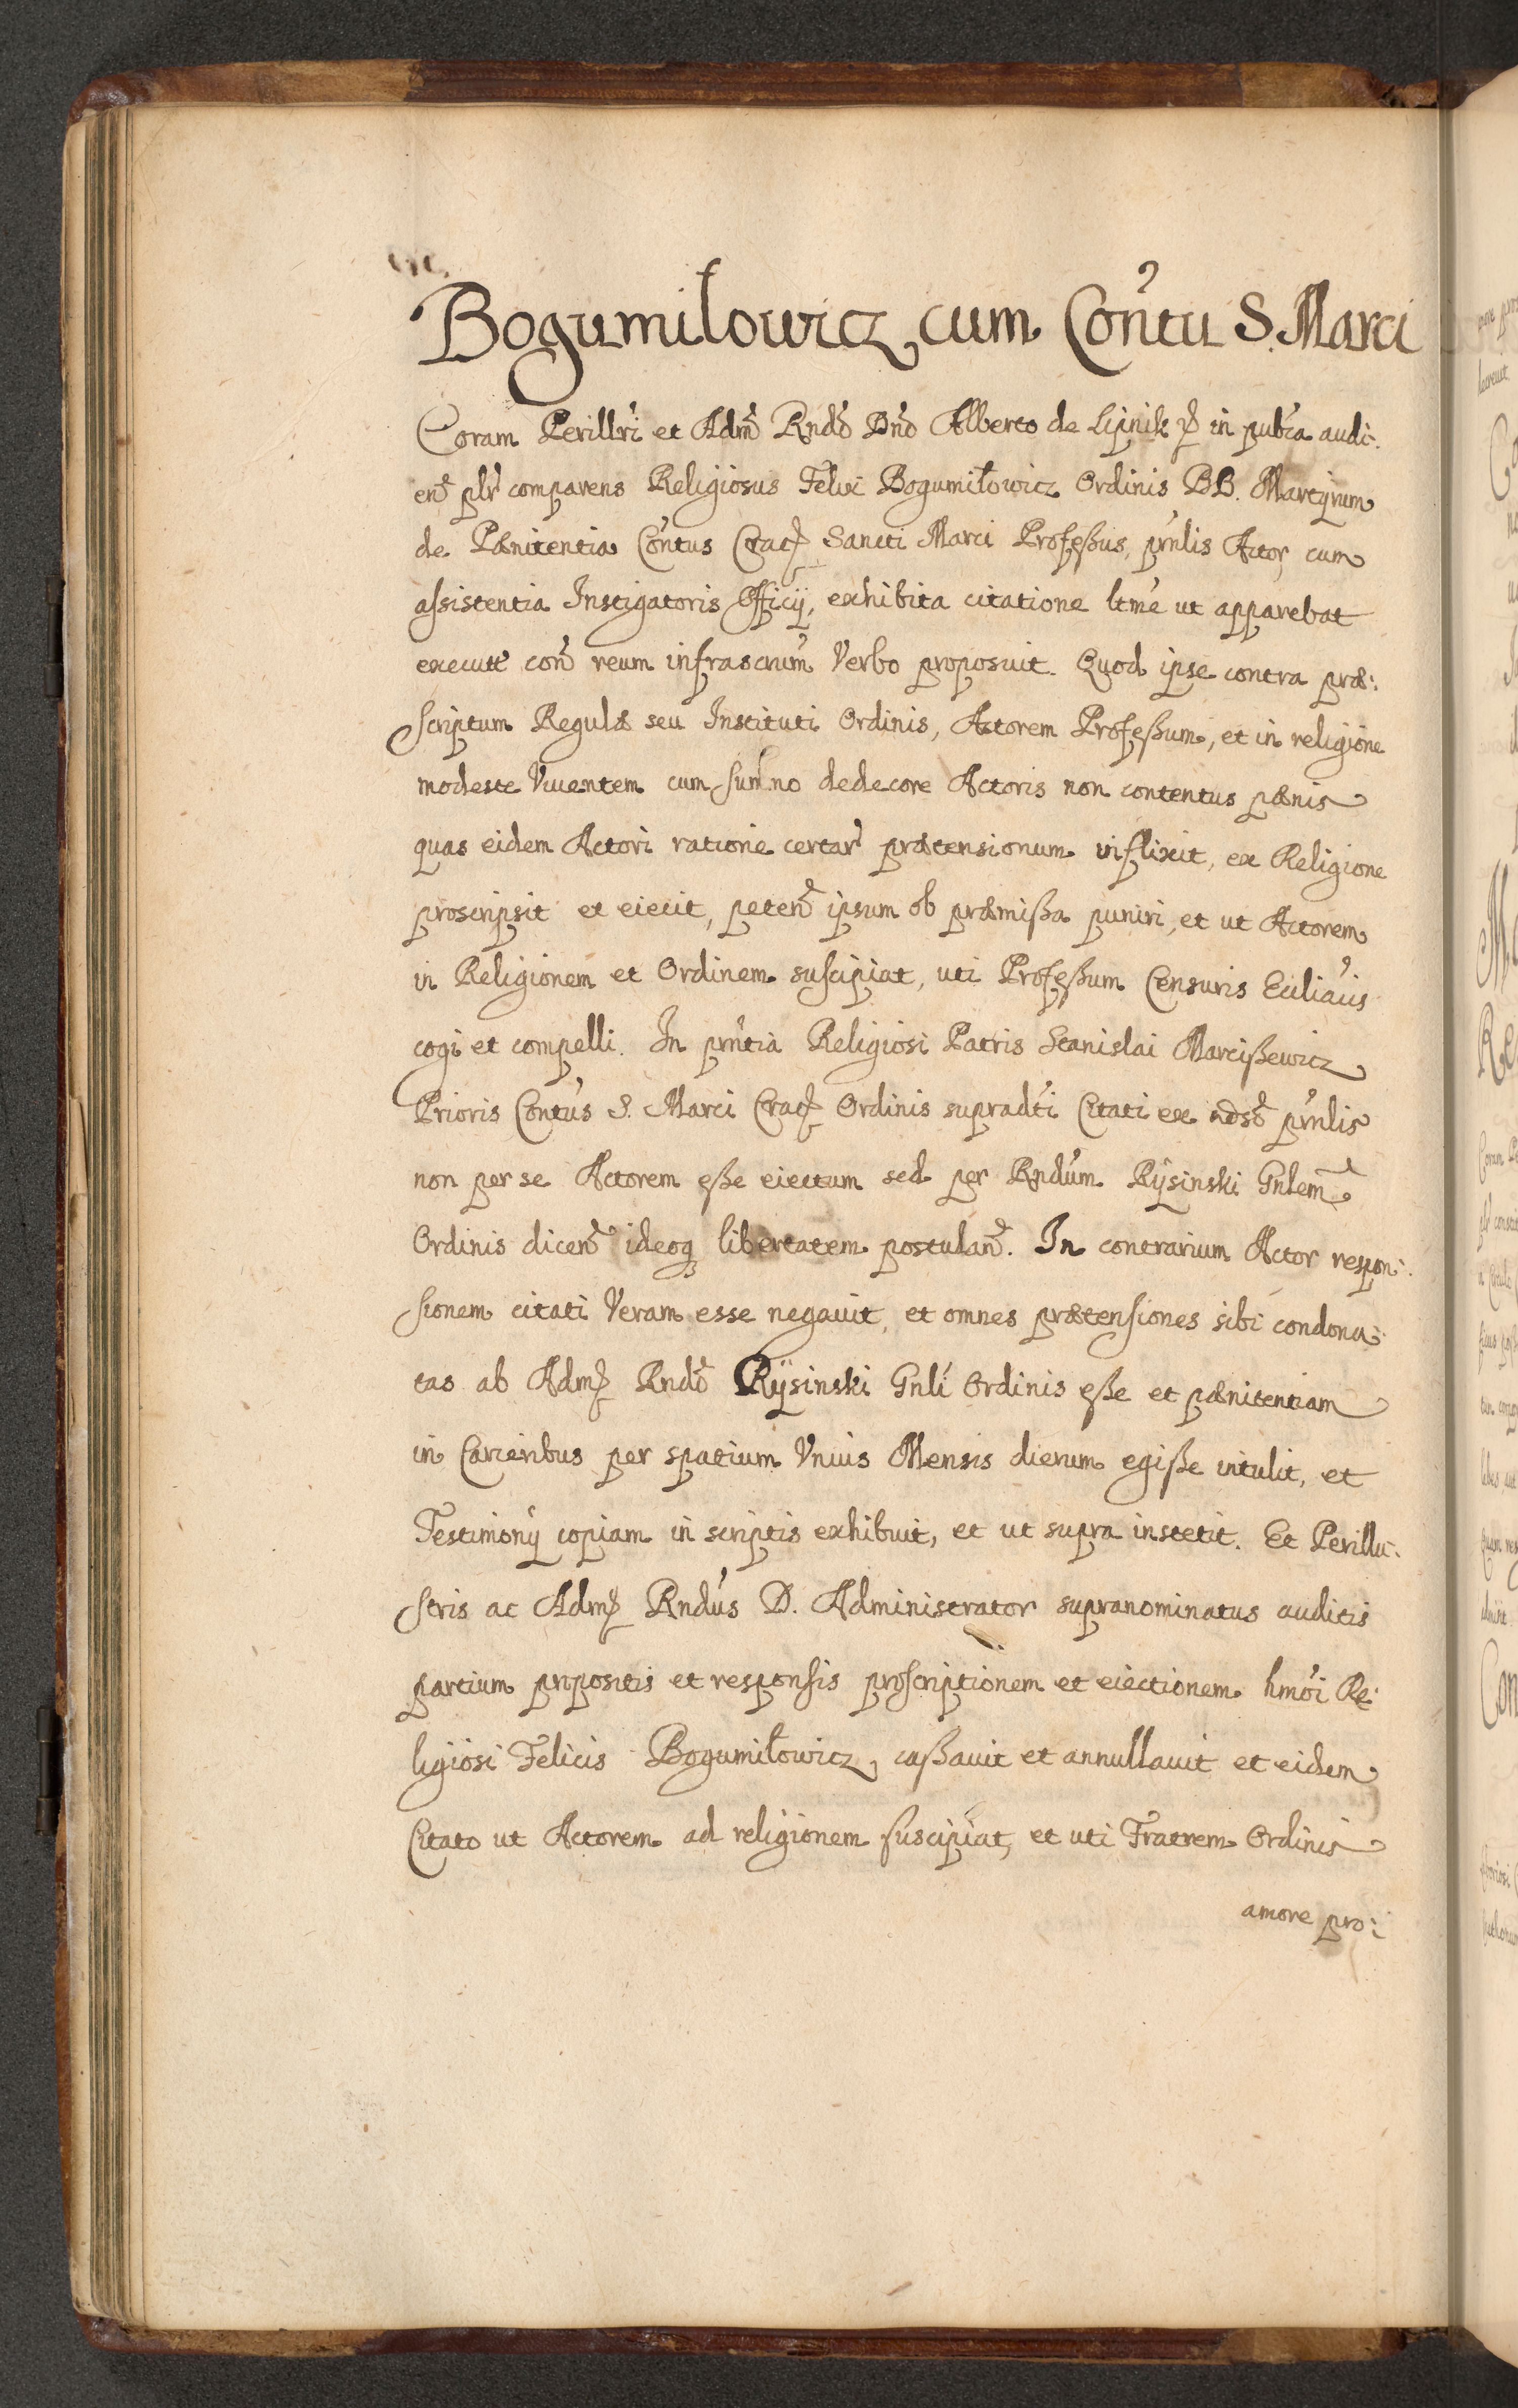 Bogumiłowicz cum Conُtu S. Marci
Coram Perillr̃i et Adm̃ Rndõ Dnõ Alberto de Lipnik p in publ̃ca audi:
eñ plr̃ comparens Religiosus Felix Bogumiłowicz Ordinis BB. Martyrum
de Pænitentia Con̄tus Crac Sancti Marci Profeßus, prñlis Actor cum
aſsistentia Instigatoris Officÿ, exhibita citatione ltm̃e ut apparebat
execut̃ con̄ reum infrascrum̃ Verbo proposuit. Quod ipse contra præ:
scriptum Regulæ seu Instituti Ordinis, Actorem Profeßum, et in religione
modeste Viuentem cum ſummo dedecore Actoris non contentus pænis
quas eidem Actori ratione certar̃ prætensionum inflixit, ex Religione
proscripsit et eiecit, peteñ ipsum ob præmißa puniri, et ut Actorem
in Religionem et Ordinem suſcipiat, uti Profeßum Censuris Eccliãis
cogi et compelli. In prñtia Religiosi Patris Stanislai Marcißewicz
Prioris Contũs S. Marci Crac Ordinis supradt̃i Citati ex adsõ prñlis
non per se Actorem eße eiectum sed per Rndũm Rÿsinski Gnlem̃
Ordinis diceñ ideoq libertatem postulañ. In contrarium Actor respon:
sionem citati Veram esse negauit, et omnes prætenſiones sibi condona:
tas ab Adm Rndõ Rÿsinski Gnlĩ Ordinis eße et pænitentiam
in Carceribus per spatium Vnius Mensis dierum egiße intulit, et
Testimonÿ copiam in scriptis exhibuit, et ut supra institit. Et Perillu:
stris ac Adm Rndũs D. Administrator supranominatus auditis
partium propositis et responſis proſcriptionem et eiectionem hmõi Re:
ligiosi Felicis Bogumiłowicz, caßauit et annullauit et eidem
Citato ut Actorem ad religionem ſuscipiat, et uti Fratrem Ordinis
amore pro: